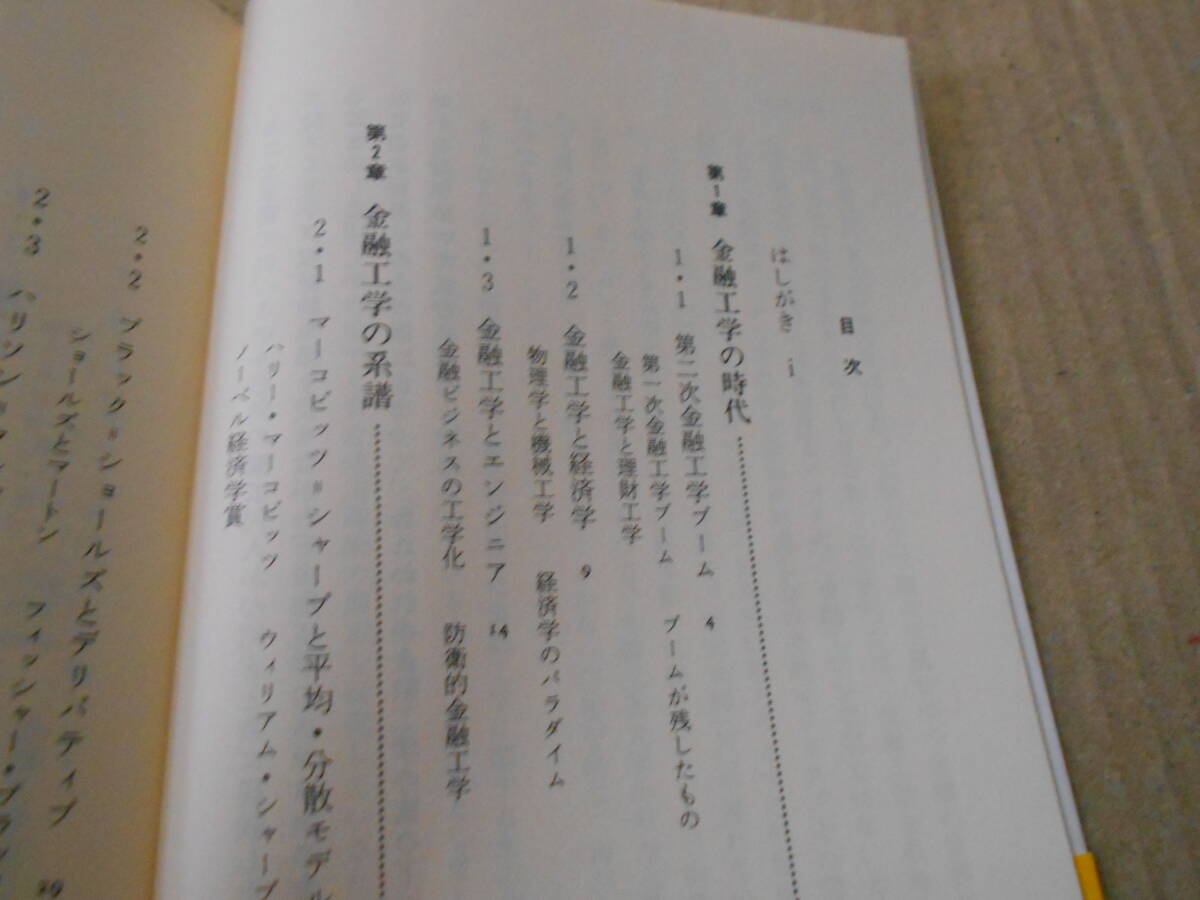 目次
はしがき i
第1章 金融工学の時代
1・1 第二次金融工学ブーム 4
第一次金融工学ブーム ブームが残したもの
金融工学と理財工学
1・2 金融工学と経済学 9
物理学と機械工学 経済学のパラダイム
1・3 金融工学とエンジニア 14
金融ビジネスの工学化 防衛的金融工学
第2章 金融工学の系譜
2・1 マーコビッツ=シャープと平均・分散モデル
ハリー・マーコビッツ ウィリアム・シャープ
ノーベル経済学賞
2・2 ブラック=ショールズとデリバティブ 29
ショールズとマートン フィッシャー・ブラッ
2・3 ハリソン